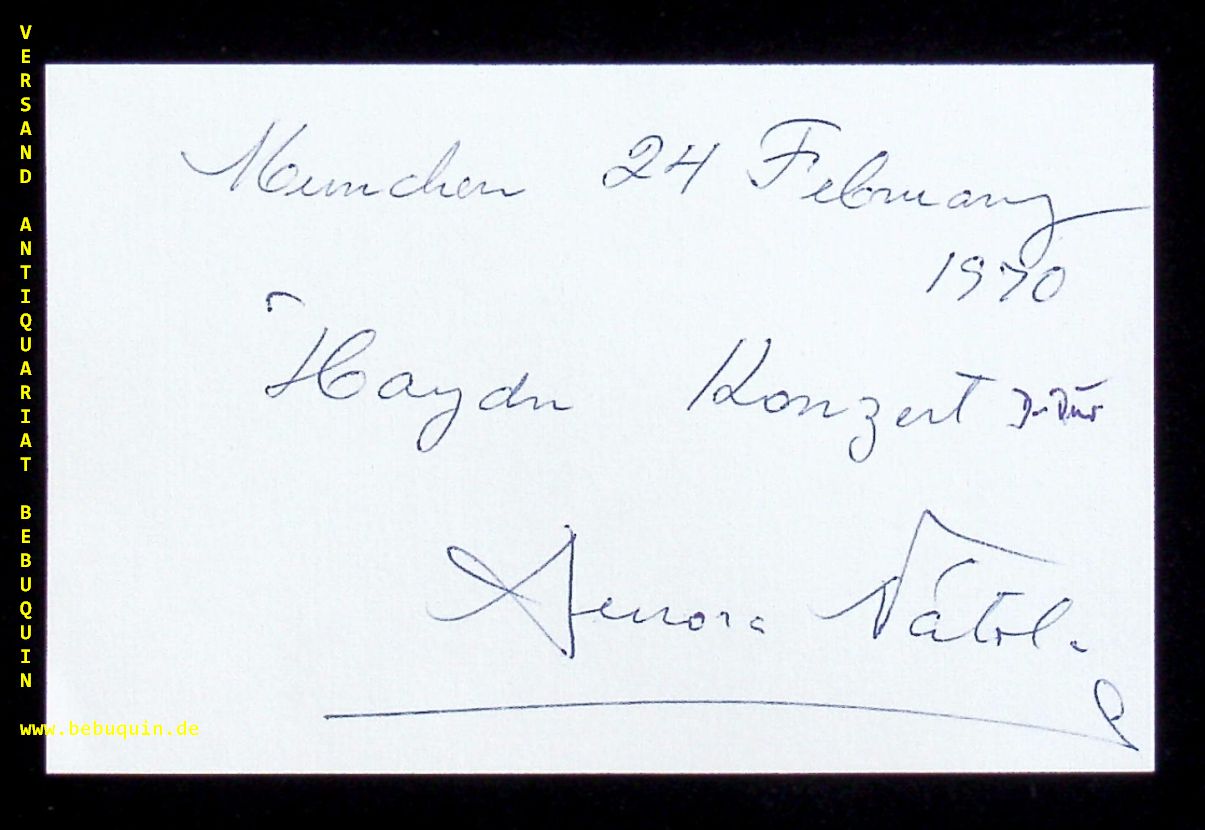 VERSAND ANTIQUARIAT BEBUQUIN
www.bebuquin.de
Munchen 24 February
1970
Haydn Konzert D-Dur
Aurora Nátol